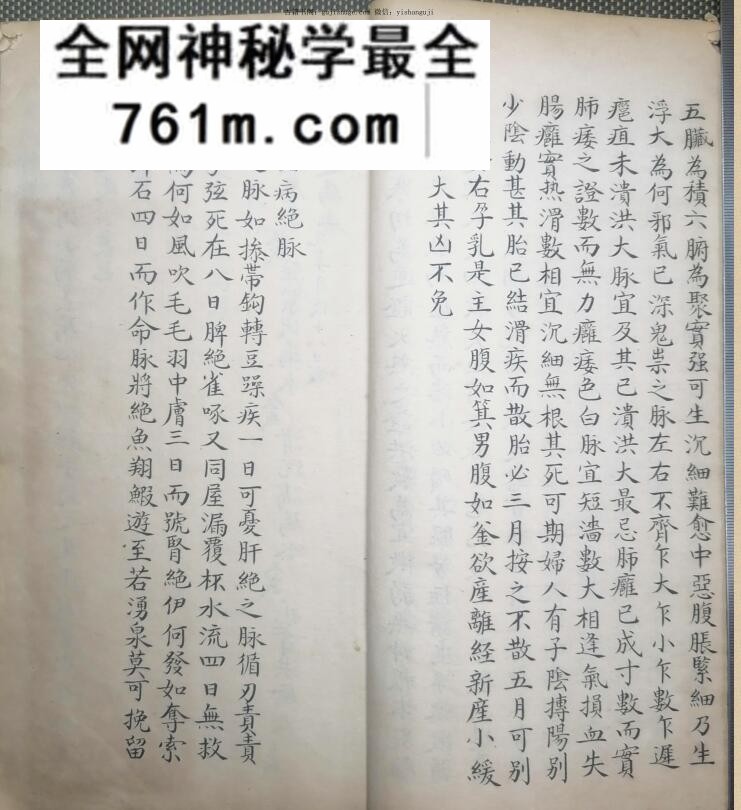 古籍书阁：gujishuge.com 微信：yishanguji
全网神秘学最全
761m.com
五臟為積六腑為聚實强可生沉細難愈中惡腹脹緊細乃生
浮大為何邪氣已深鬼祟之脉左右不齊乍大乍小乍數乍遲
癰疽未潰洪大脉宜及其已潰洪大最忌肺癰已成寸數而實
肺痿之證數而無力癰痿色白脉宜短濇數大相逢氣損血失
腸癰實热滑數相宜沉細無根其死可期婦人有子陰摶陽别
少陰動甚其胎已結滑疾而散胎必三月按之不散五月可别
右孕乳是主女腹如箕男腹如釜欲産離経新産小緩
大其凶不免
病絶脉
脉如掺帯鈎轉豆躁疾一日可憂肝絶之脉循刃責責
弦死在八日脾絶雀啄又同屋漏覆杯水流四日無救
為何如風吹毛毛羽中膚三日而號腎絶伊何發如奪索
石四日而作命脉將絶魚翔鰕遊至若湧泉莫可挽留